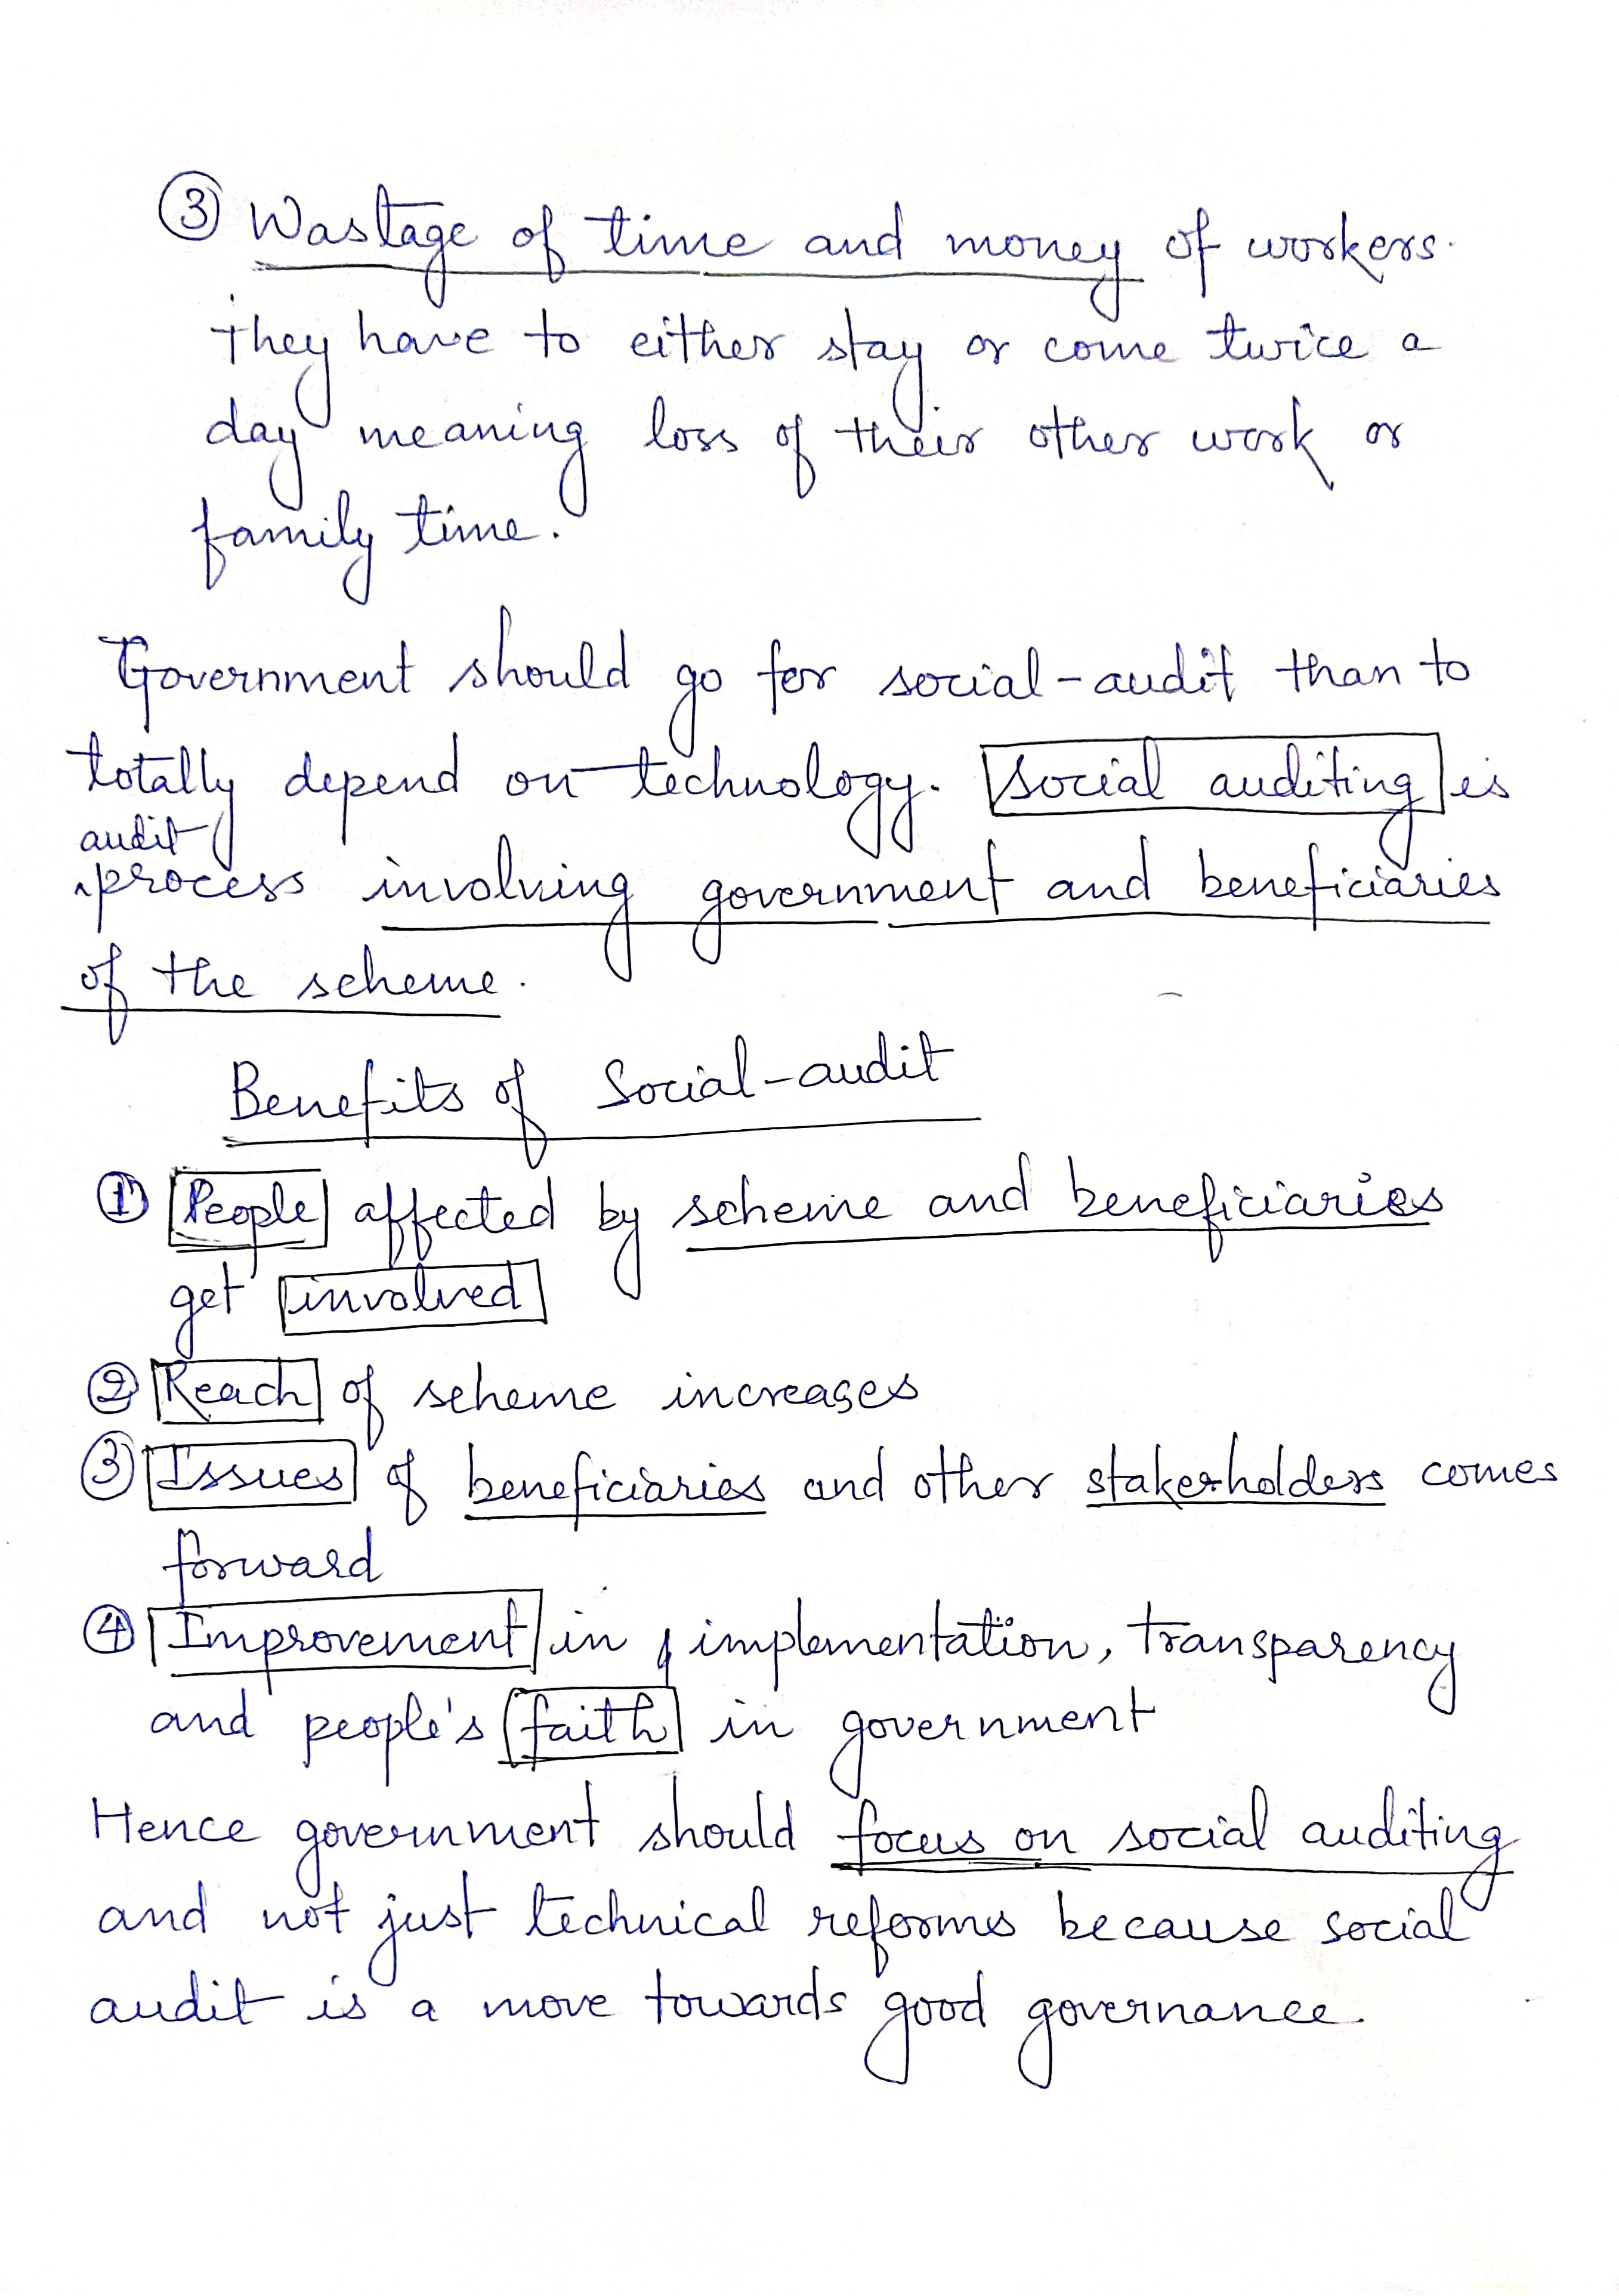 ③ Wastage of time and money of workers.
They have to either stay or come twice a
day meaning loss of their other work or
family time.
Government should go for social-audit than to
totally depend on technology. Social auditing is
audit
process involving government and beneficiaries
of the scheme.
Benefits of Social-audit
① People affected by scheme and beneficiaries
get involved
② Reach of scheme increases
③ Issues of beneficiaries and other stakerholders comes
forward
④ Improvement in implementation, transparency
and people's faith in government
Hence government should focus on social auditing
and not just technical reforms because social
audit is a move towards good governance.